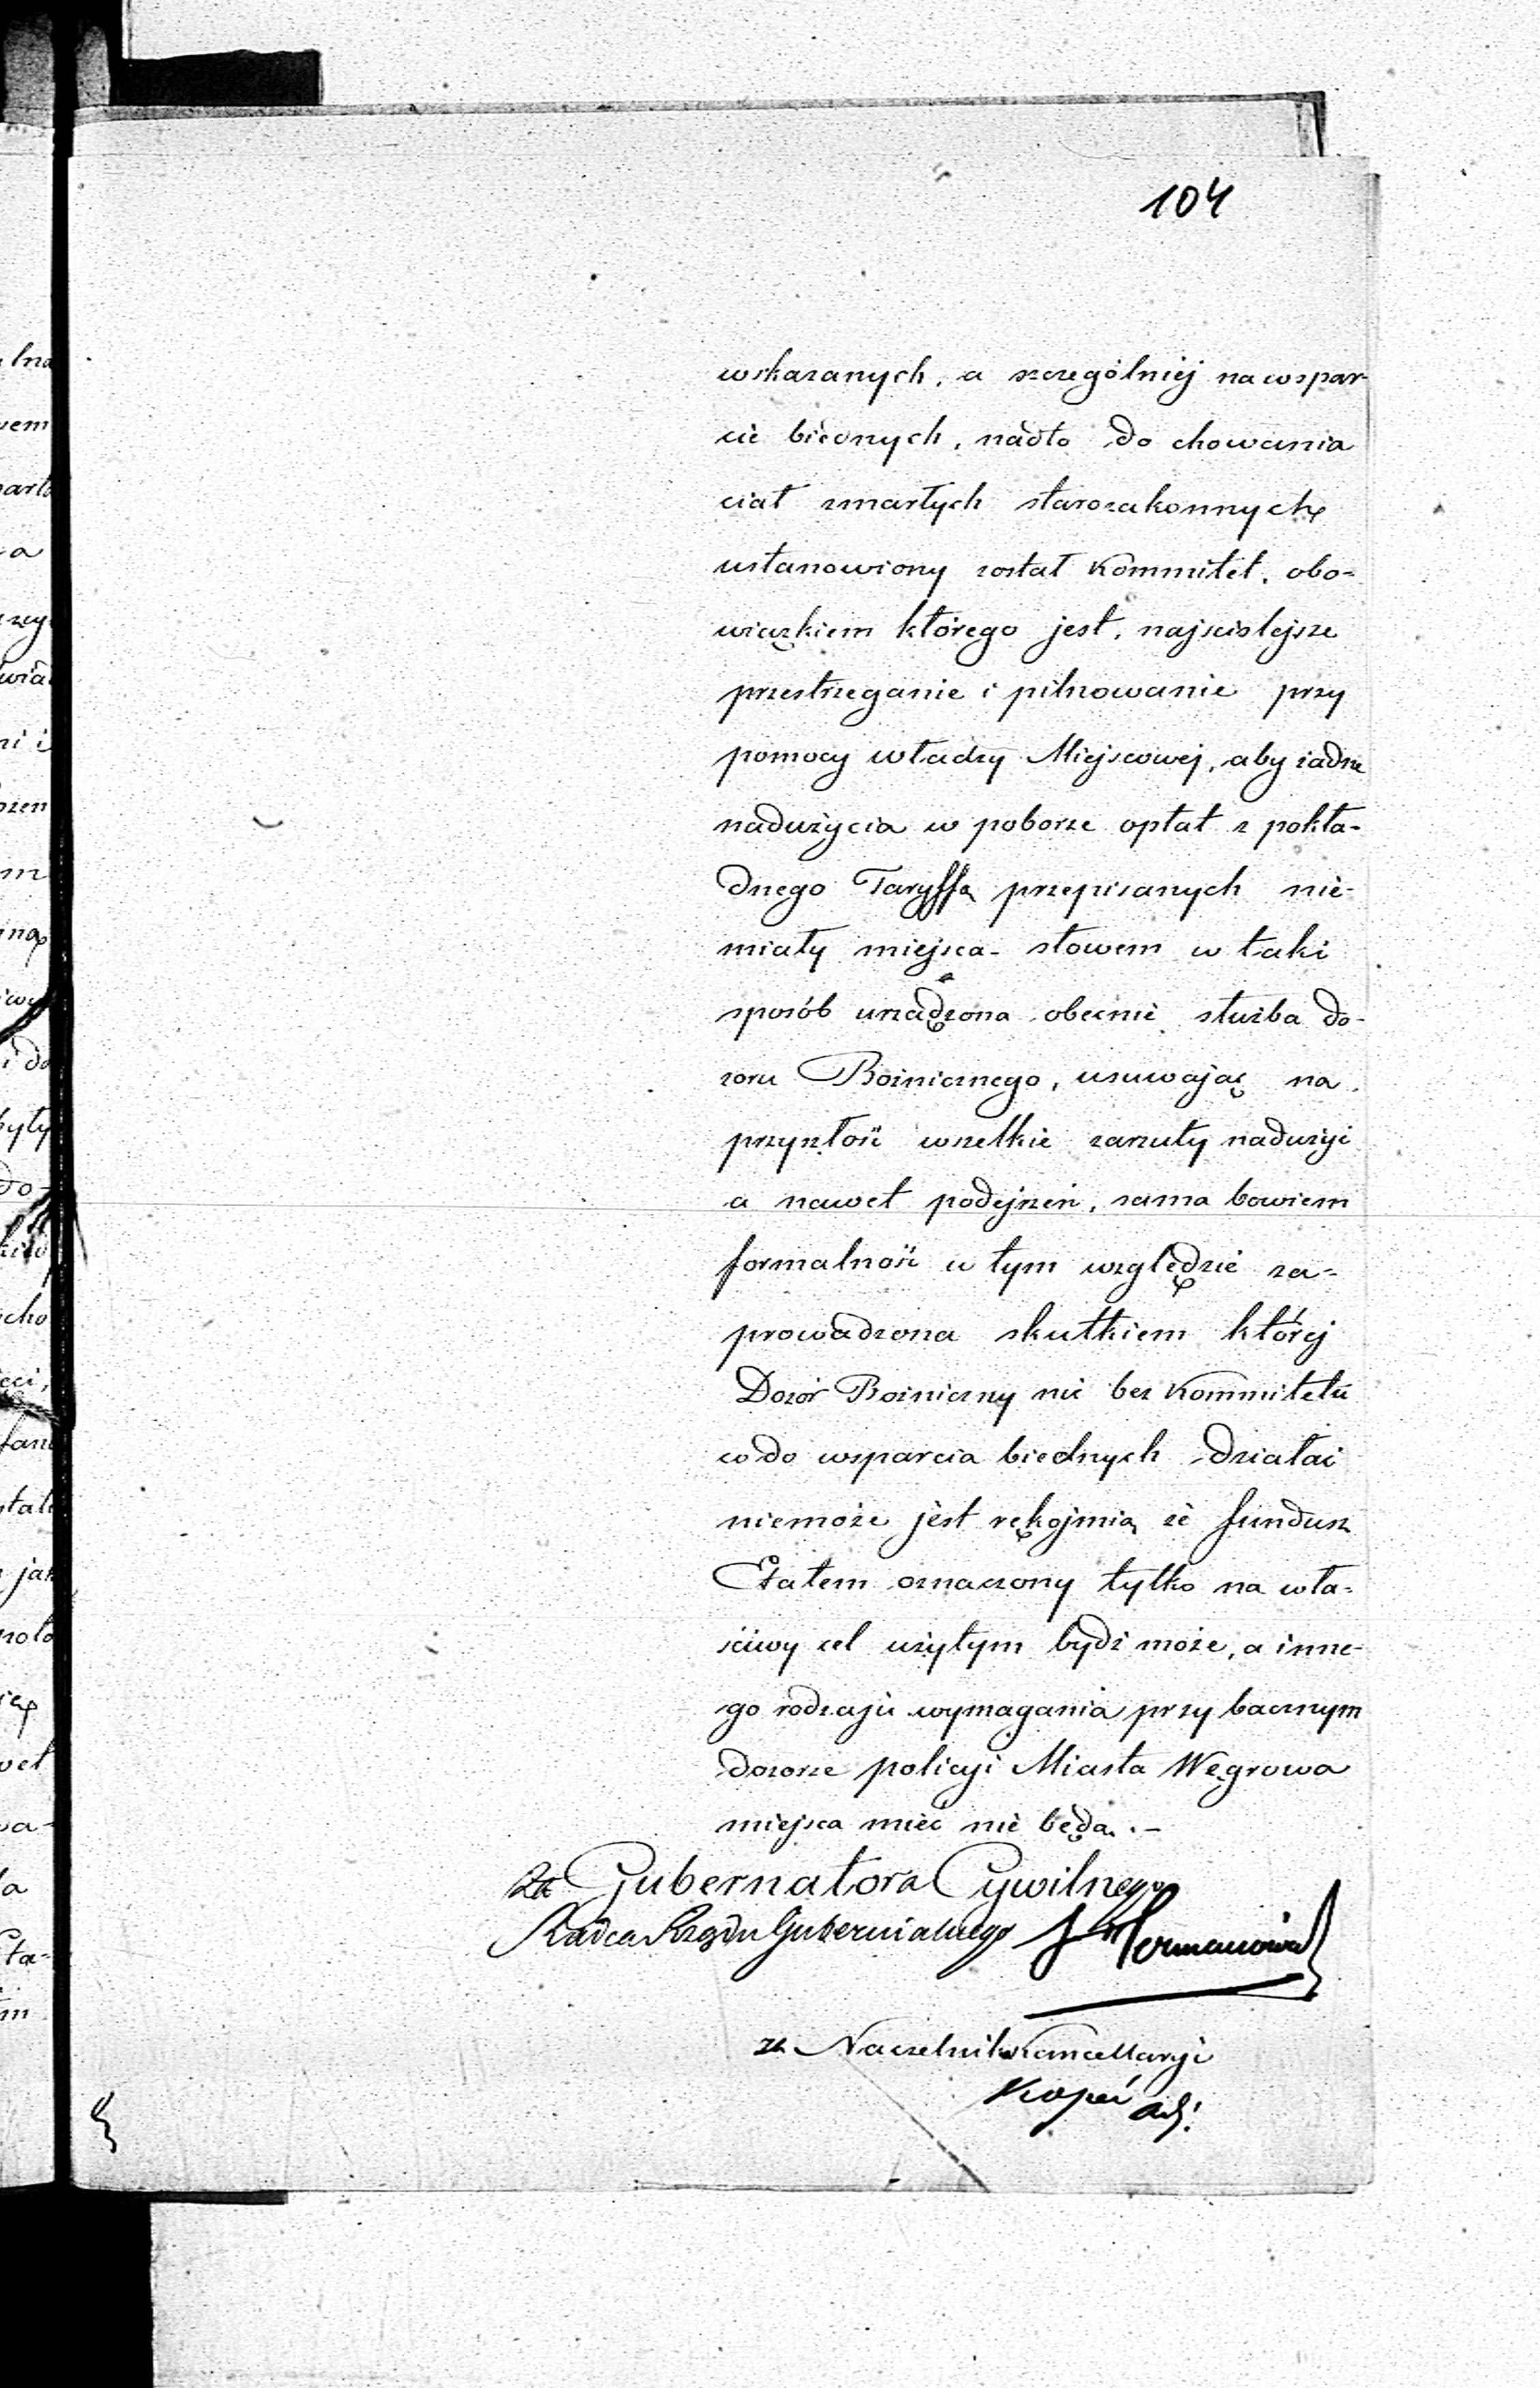 104
wskazanych, a szczególniéj na wspar-
cie biédnych, nadto do chowania
ciał zmarłych starozakonnych
ustanowiony został Kommitet, obo-
wiązkiem którego jest, najscislejsze
przestrzeganie i pilnowanie przy
pomocy władzy Miejscowej, aby żadne
nadużycia w poborze opłat z pokła-
dnego Taryffą przepisanych nie-
miały miejsca - słowem w taki
sposób urządzona obecnie służba do-
zoru Bożnicznego, usuwając na
przyszłość wszelkie zarzuty nadużyć
a nawet podejrzeń, sama bowiem
formalność w tym względzie za-
prowadzona skutkiem któréj
Dozór Bożniczny nic bez Kommitetu
co do wsparcia biednych działać
niemoże jest rękojmią że fundusz
Etatem oznaczony tylko na wła-
ściwy cel użytym bydź może, a inne-
go rodzaju wymagania przy bacznym
dozorze policyi Miasta Węgrowa
miejsca mieć nie będą. -
za Gubernatora Cywilnego
Radca Rządu Gubernialnego
za Naczelnik Kancellaryi
Kopeć adj: